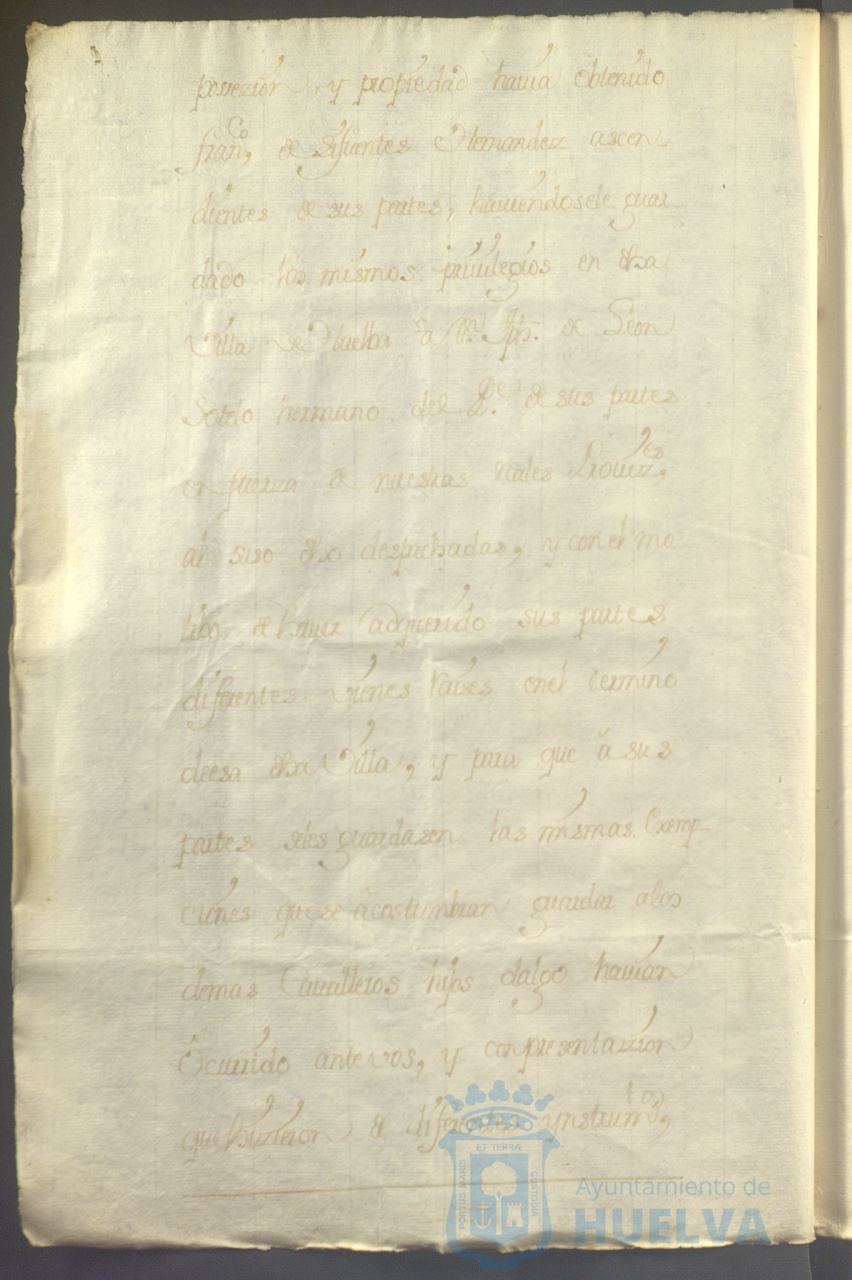 possezion, y propiedad havia obtenido
fran.co de Sifuentes Hernandez ascen
dientes de sus partes, haviendosele guar
dado los mismos privilegios en dha
Villa de Huelba a Dn. Jph. de Leon
Sotelo hermano del Pe. de sus partes
en fuerza de nuestras Rales Proviz.es,
al suso dho despachadas, y con el mo
tibo de haver adquirido sus partes
diferentes vienes Raises enel termino
deesa dha Villa, y para que â sus
partes seles guardasen las mismas Exemp-
ciones que se acostumbran guardar alos
demas Cavalleros hijos dalgo havian
Ocurrido antevos, y con presentazion
que hizieron de diferentes ynstrum.tos,
ET TERRÆ
PORTUS MARIS
CUSTODIA
Ayuntamiento de
HUELVA